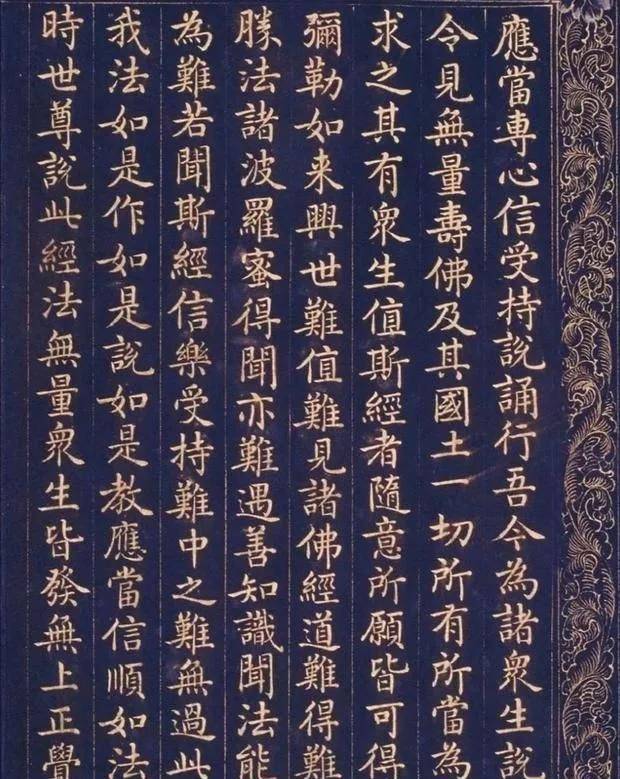 應當專心信受持說誦行吾今為諸衆生說
令見無量壽佛及其國土一切所有所當為
求之其有衆生值斯經者隨意所願皆可得
彌勒如来興世難值難見諸佛經道難得難
勝法諸波羅蜜得聞亦難遇善知識聞法能
為難若聞斯經信樂受持難中之難無過此
我法如是作如是說如是教應當信順如法
時世尊說此經法無量衆生皆發無上正覺